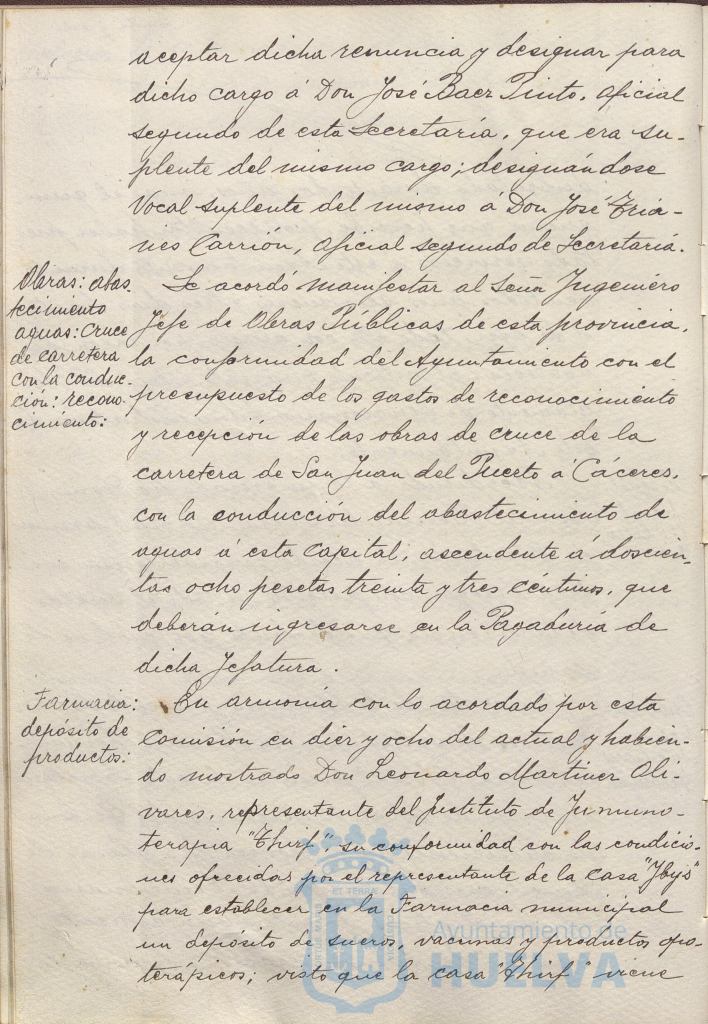 aceptar dicha renuncia y designar para
dicho cargo á Don José Baer Pinto, oficial
segundo de esta Secretaría, que era su-
plente del mismo cargo; designándose
Vocal suplente del mismo á Don José Tria-
nes Carrión, oficial segundo de Secretaría.
Obras: abas-
tecimiento
aguas: cruce
de carretera
con la conduc-
ción: recono-
cimiento:
Se acordó manifestar al Señor Ingeniero
Jefe de Obras Públicas de esta provincia,
la conformidad del Ayuntamiento con el
presupuesto de los gastos de reconocimiento
y recepción de las obras de cruce de la
carretera de San Juan del Puerto á Cáceres,
con la conducción del abastecimiento de
aguas á esta Capital, ascendente á doscien-
tas ocho pesetas treinta y tres céntimos, que
deberán ingresarse en la Pagaduría de
dicha Jefatura.
Farmacia:
depósito de
productos:
En armonía con lo acordado por esta
Comisión en diez y ocho del actual y habien-
do mostrado Don Leonardo Martinez Oli-
vares, representante del Instituto de Inmuno-
terapia "Thirf", su conformidad con las condicio-
nes ofrecidas por el representante de la casa "Ibys"
para establecer en la Farmacia municipal
un depósito de sueros, vacunas y productos opo-
terápicos; visto que la casa "Thirf" viene
Ayuntamiento de
HUELVA